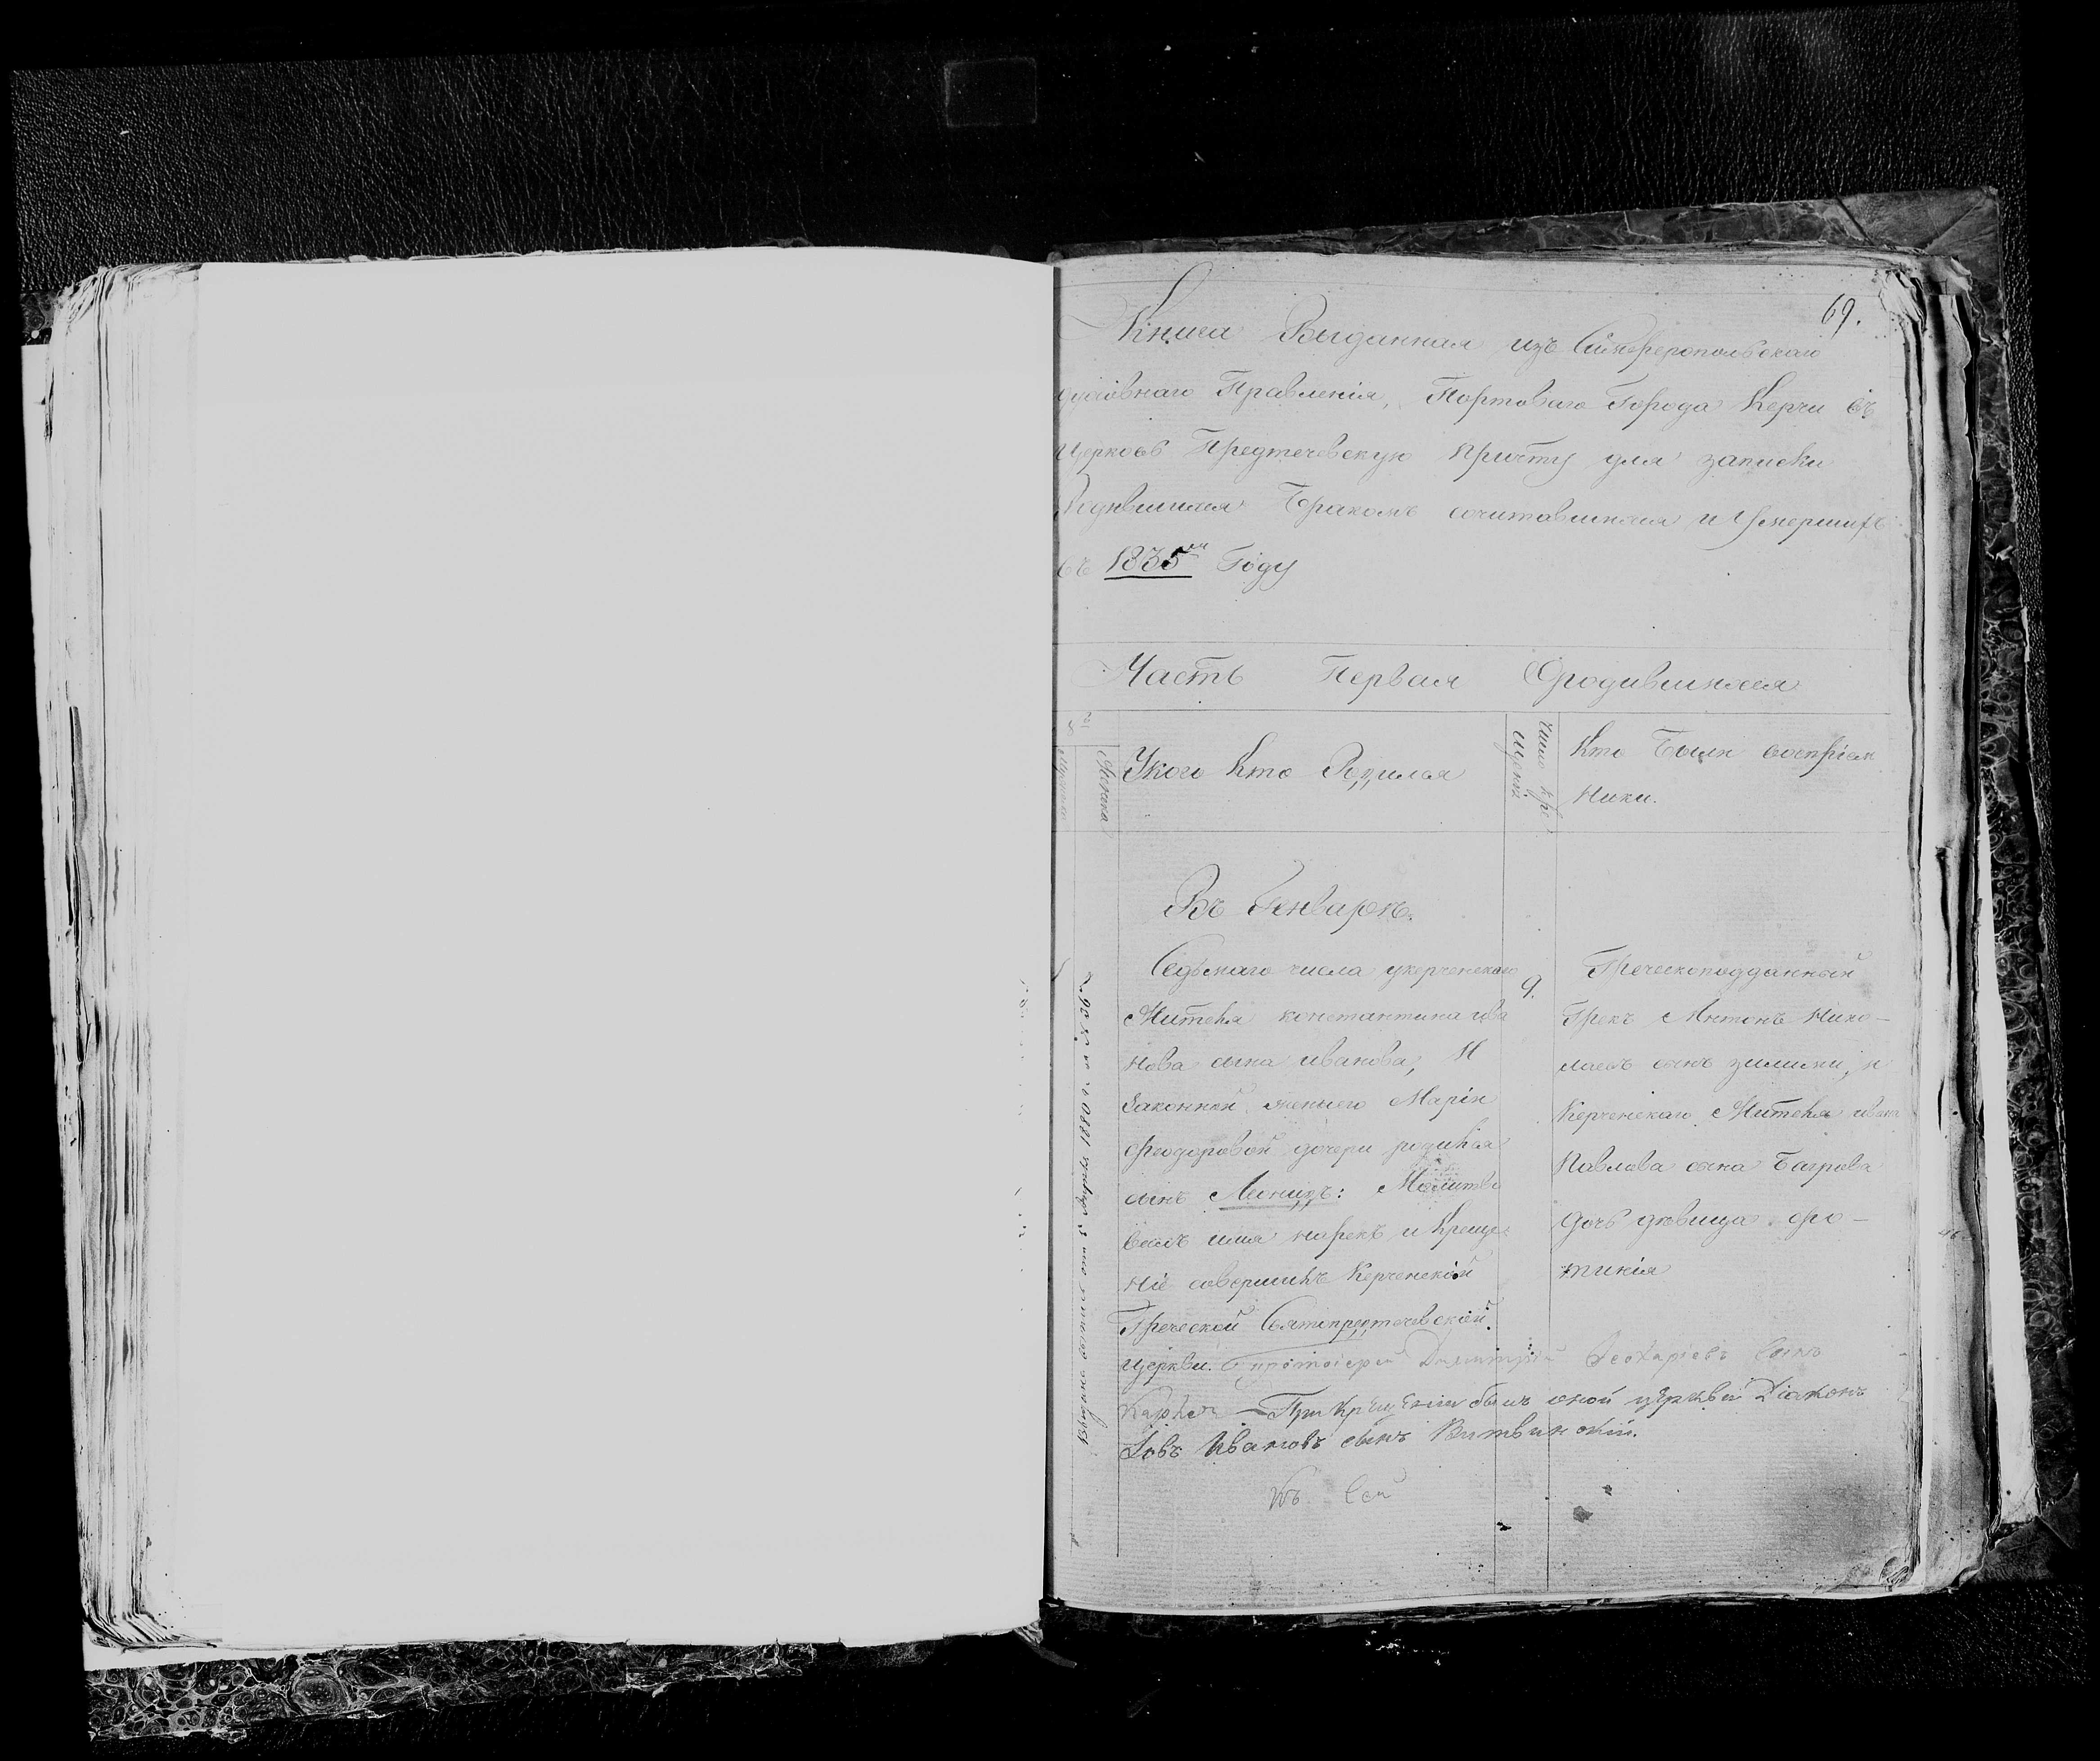 69.
Книга Выданная изъ Симферопольскаго
духовнаго Правленія, Портоваго Города Керчи въ
Церковь Предтечевскую причту для записки
Родившихся Бракомъ сочитавшихся и Умершихъ
въ 1835м Году
Часть Первая Ородившихся
Женска
Укого Кто Родился
число кре
щенія
Кто Были воспріем
ники.
Въ Генварѣ.
Седьмаго числа укерченскаго
Жителя константина ива
нова сына иванова, И
Законной жены его Маріи
Феодоровой дочери родился
сынъ : Молитво
валъ имя нарекъ и Креще
ніе совершилъ Керченской
Греческой Святопредтечевской
церкви. протоіерей Димитрій Феохаріевъ сынъ
При Крещеніи былъ оной церкви Діаконъ
Іовъ Ивановъ сынъ Витвинскій.
Къ сей
9.
Греческоподданный
Грекъ Антонъ Нико-
лаевъ сынъ зилилки, и
Керченскаго Жителя иван
Павлова сына Багрова
дочь девица фо-
тинія